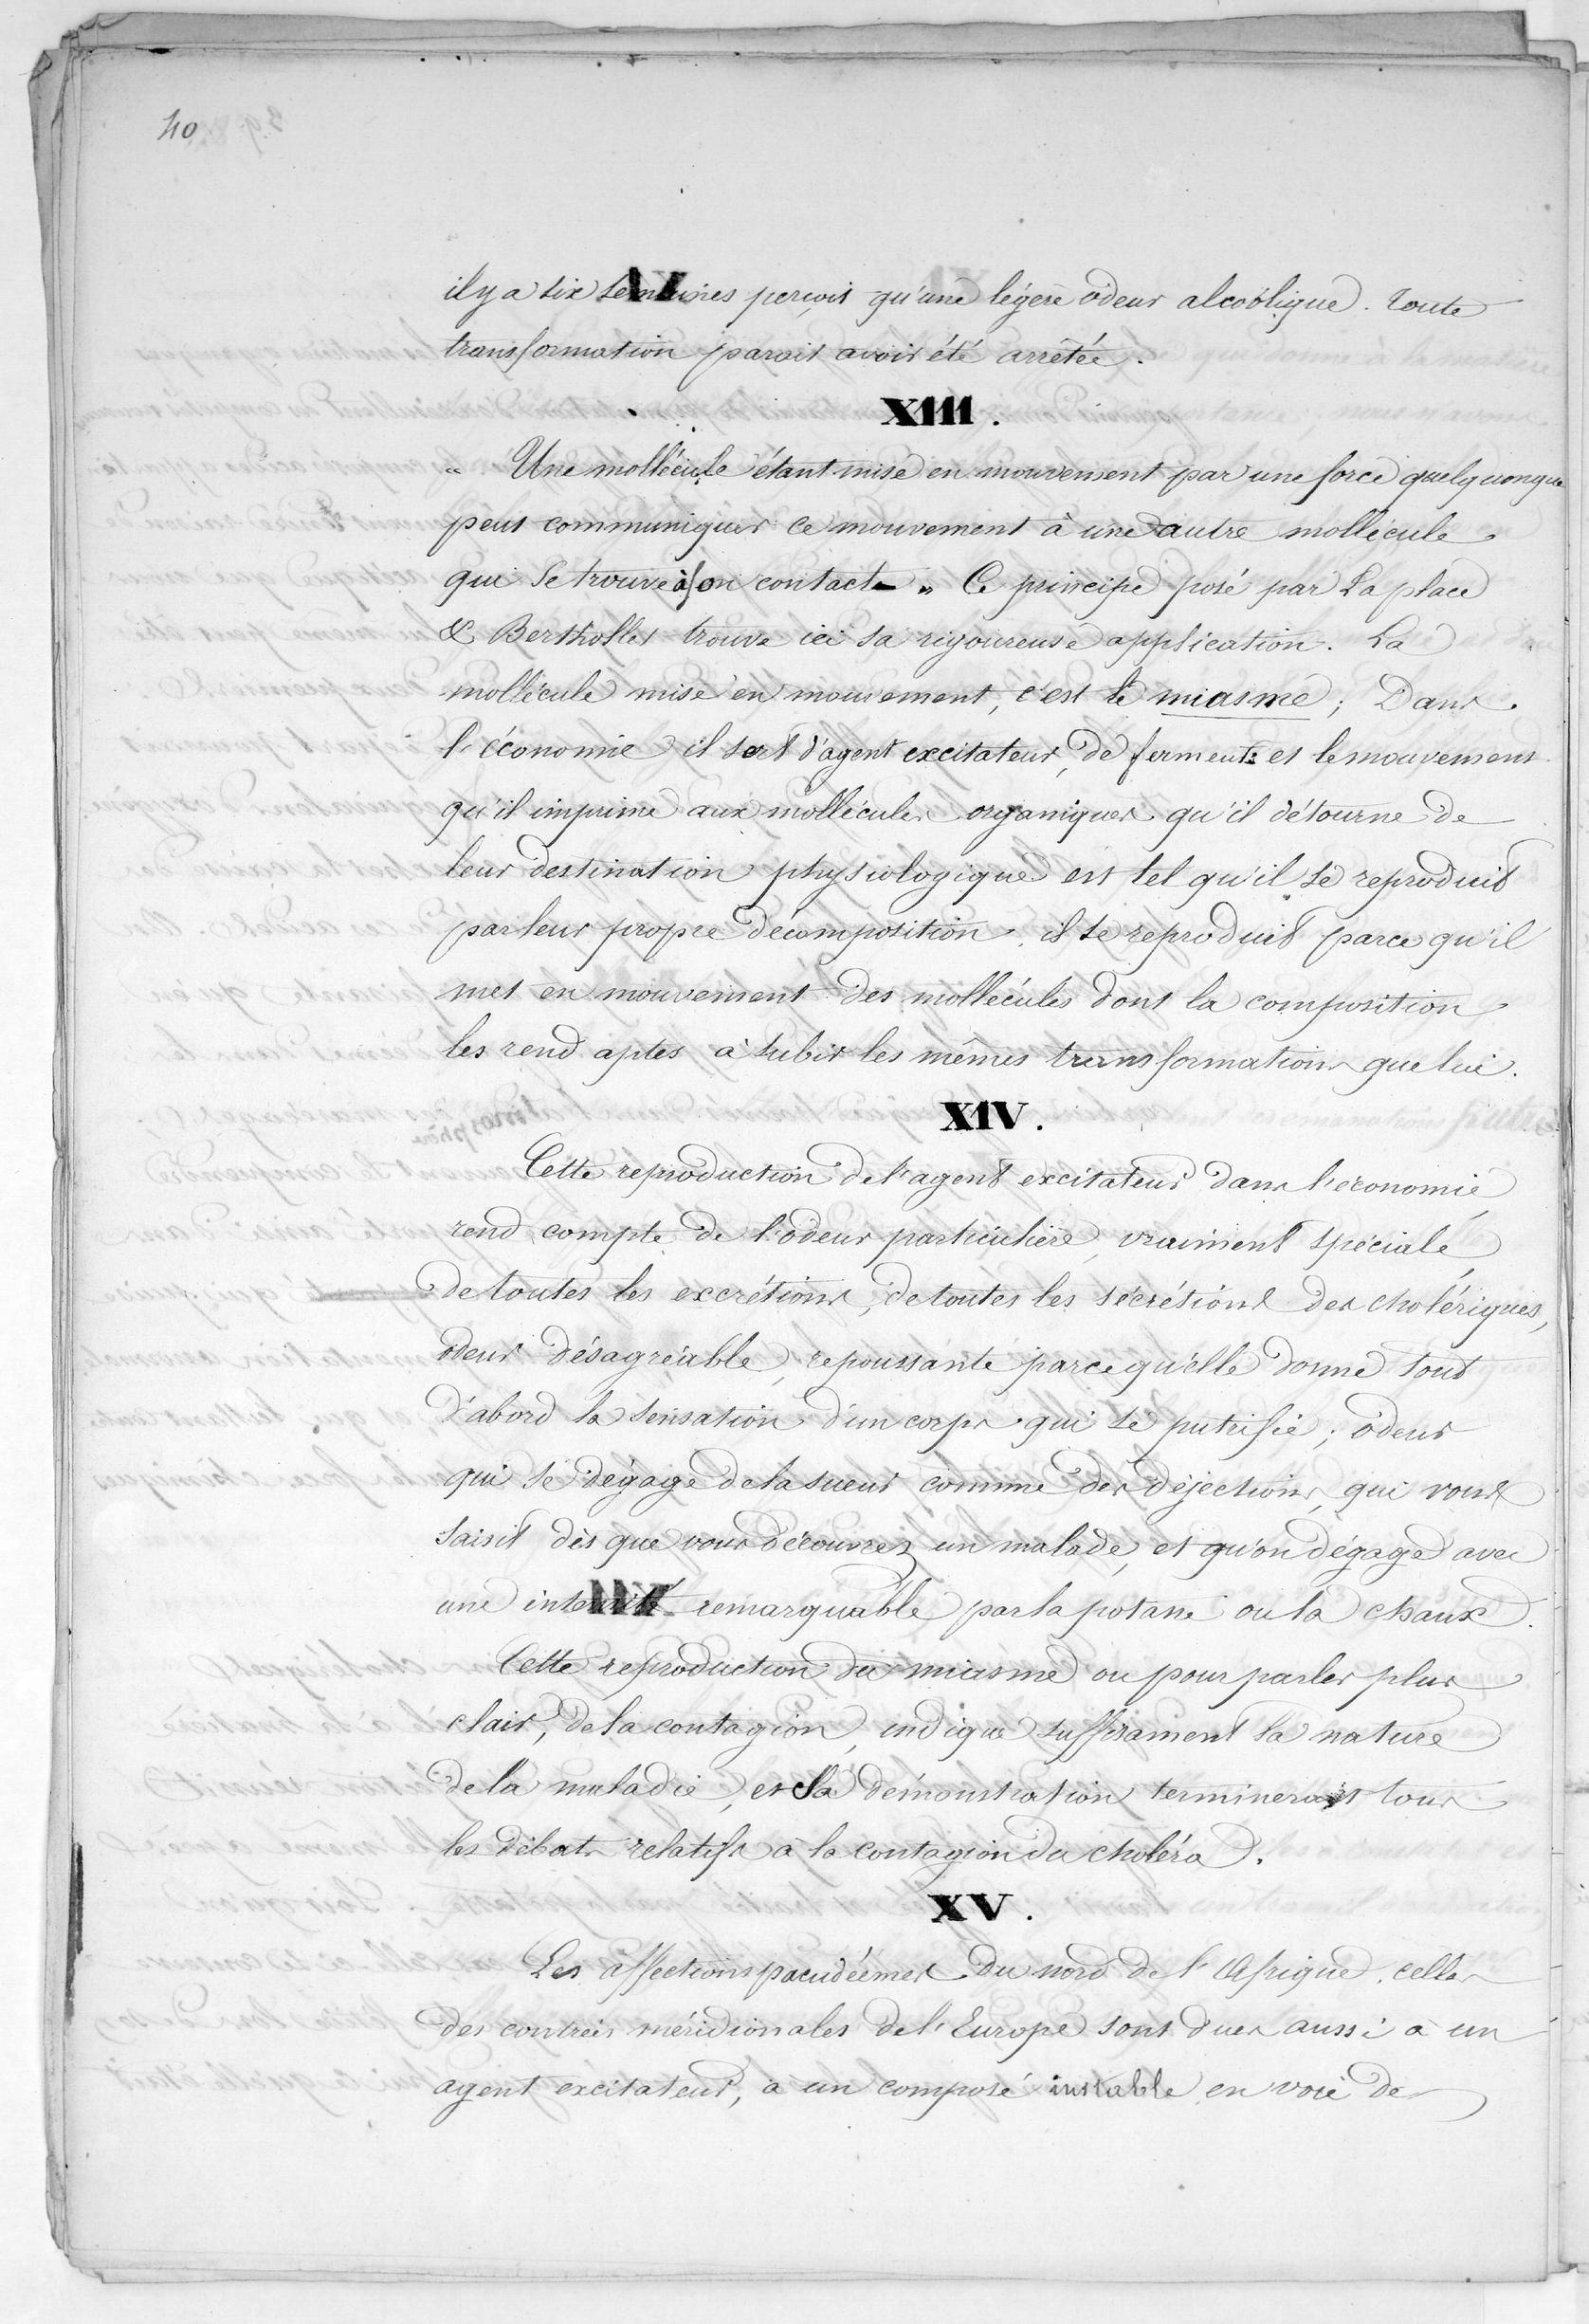 40
il y a six semaines perçois qu'une légère odeur alcoolique. Toute
transformation parait avoir été arrêtée.
XIII.
" Une mollécule étant mise en mouvement par une force quelquonque
peut communiquer ce mouvement à une autre mollécule
qui se trouve à son contact — " Ce principe posé par La place
& Berthollet trouve ici sa rigoureuse application. La
mollécule mise en mouvement, c'est le miasme ; Dans
l'économie il sert d'agent excitateur, de ferment et le mouvement
qu'il imprime aux mollécules organiques qu'il détourne de
leur destination physiologique est tel qu'il se reproduit
par leur propre décomposition, il se reproduit parce qu'il
met en mouvement des mollécules dont la composition
les rend aptes à subir les mêmes transformations que lui.
XIV.
Cette reproduction de l'agent excitateur dans l'économie
rend compte de l'odeur particulière, vraiment spéciale,
de toutes les excrétions, de toutes les sécrétions des cholériques,
odeur désagréable, repoussante parce qu'elle donne tout
d'abord la sensation d'un corps qui se putrifie ; odeur
qui se dégage de la sueur comme des déjections, qui vous
saisit dès que vous découvrez un malade, et qu'on dégage avec
une intensité remarquable par la potasse ou la chaux.
Cette reproduction du miasme ou pour parler plus
clair, de la contagion, indique suffisament la nature
de la maladie, et sa démonstration terminerait tous
les débats relatifs à la contagion du choléra.
XV.
Les affections paludéemes du nord de l'Afrique, celles
des contrées méridionales de l'Europe sont dues aussi à un
agent excitateur, à un composé instable en voie de